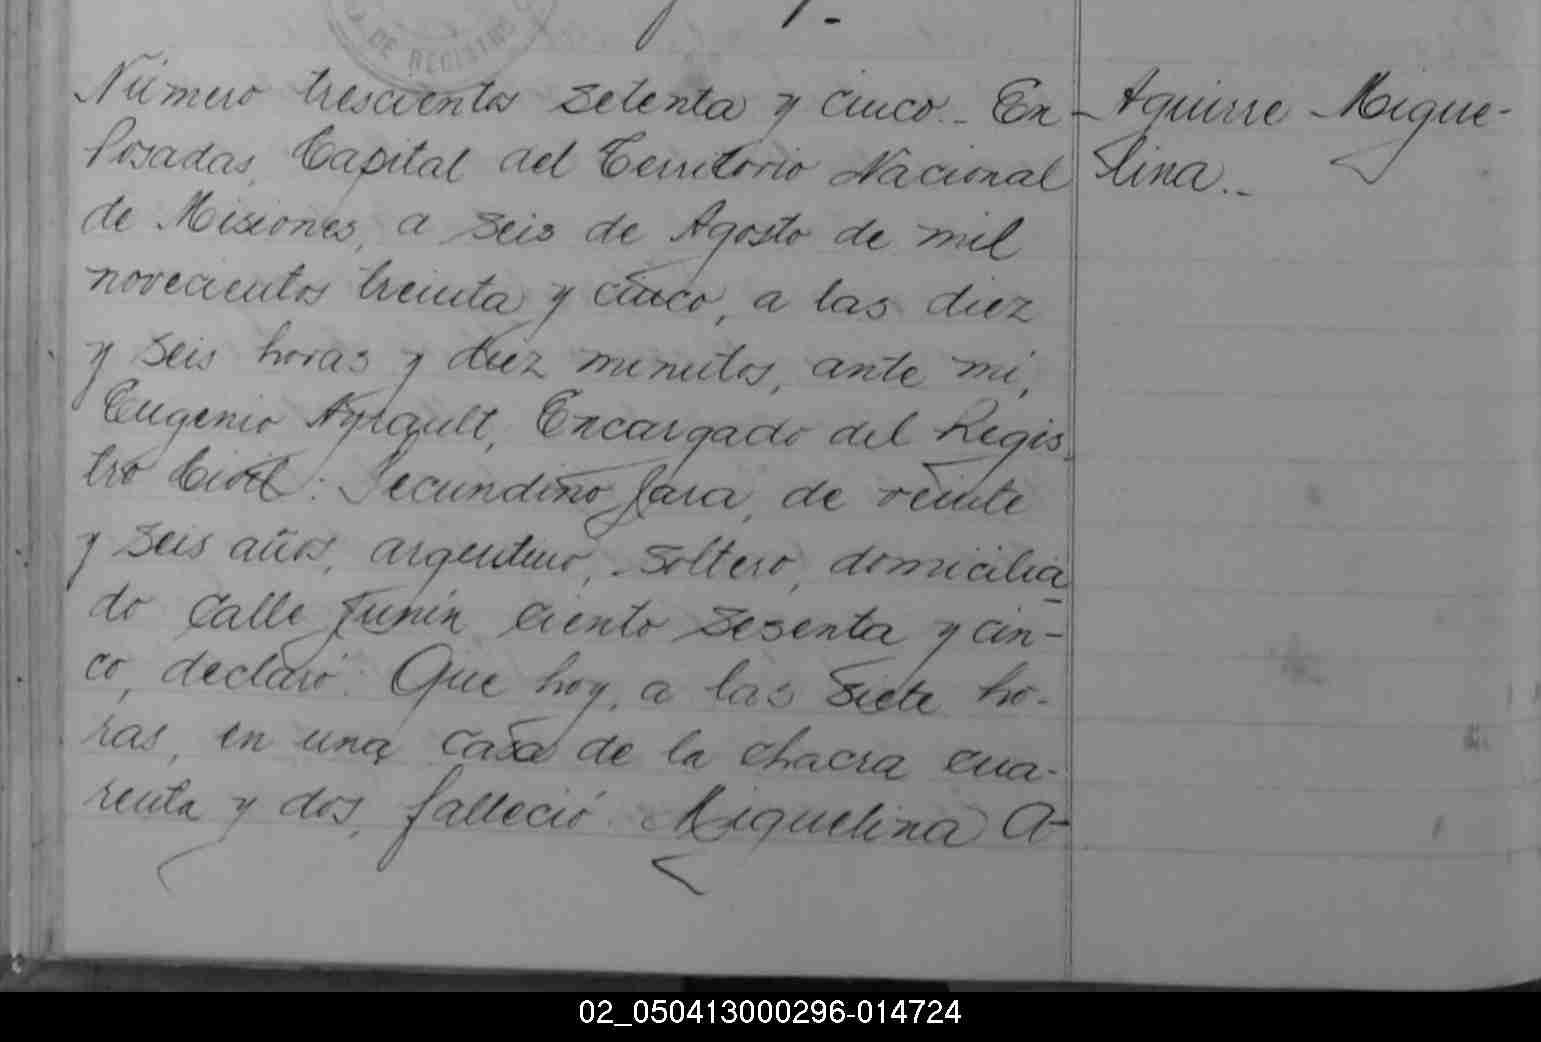 DE REGISTROS
Número trescientos setenta y cinco.. En
Posadas, Capital del Territorio Nacional
de Misiones, a seis de Agosto de mil
novecientos treinta y cinco, a las diez
y seis horas y diez minutos, ante mí,
Eugenio Ayrault, Encargado del Regis-
tro Civil: Secundino Jara, de veinte
y seis años, argentino, soltero, domicilia
do Calle Junín ciento sesenta y cin-
co, declaró: Que hoy, a las siete ho-
ras, en una casa de la chacra cua-
renta y dos, falleció Miquelina A-
Aguirre Mique-
lina..
02_050413000296-014724